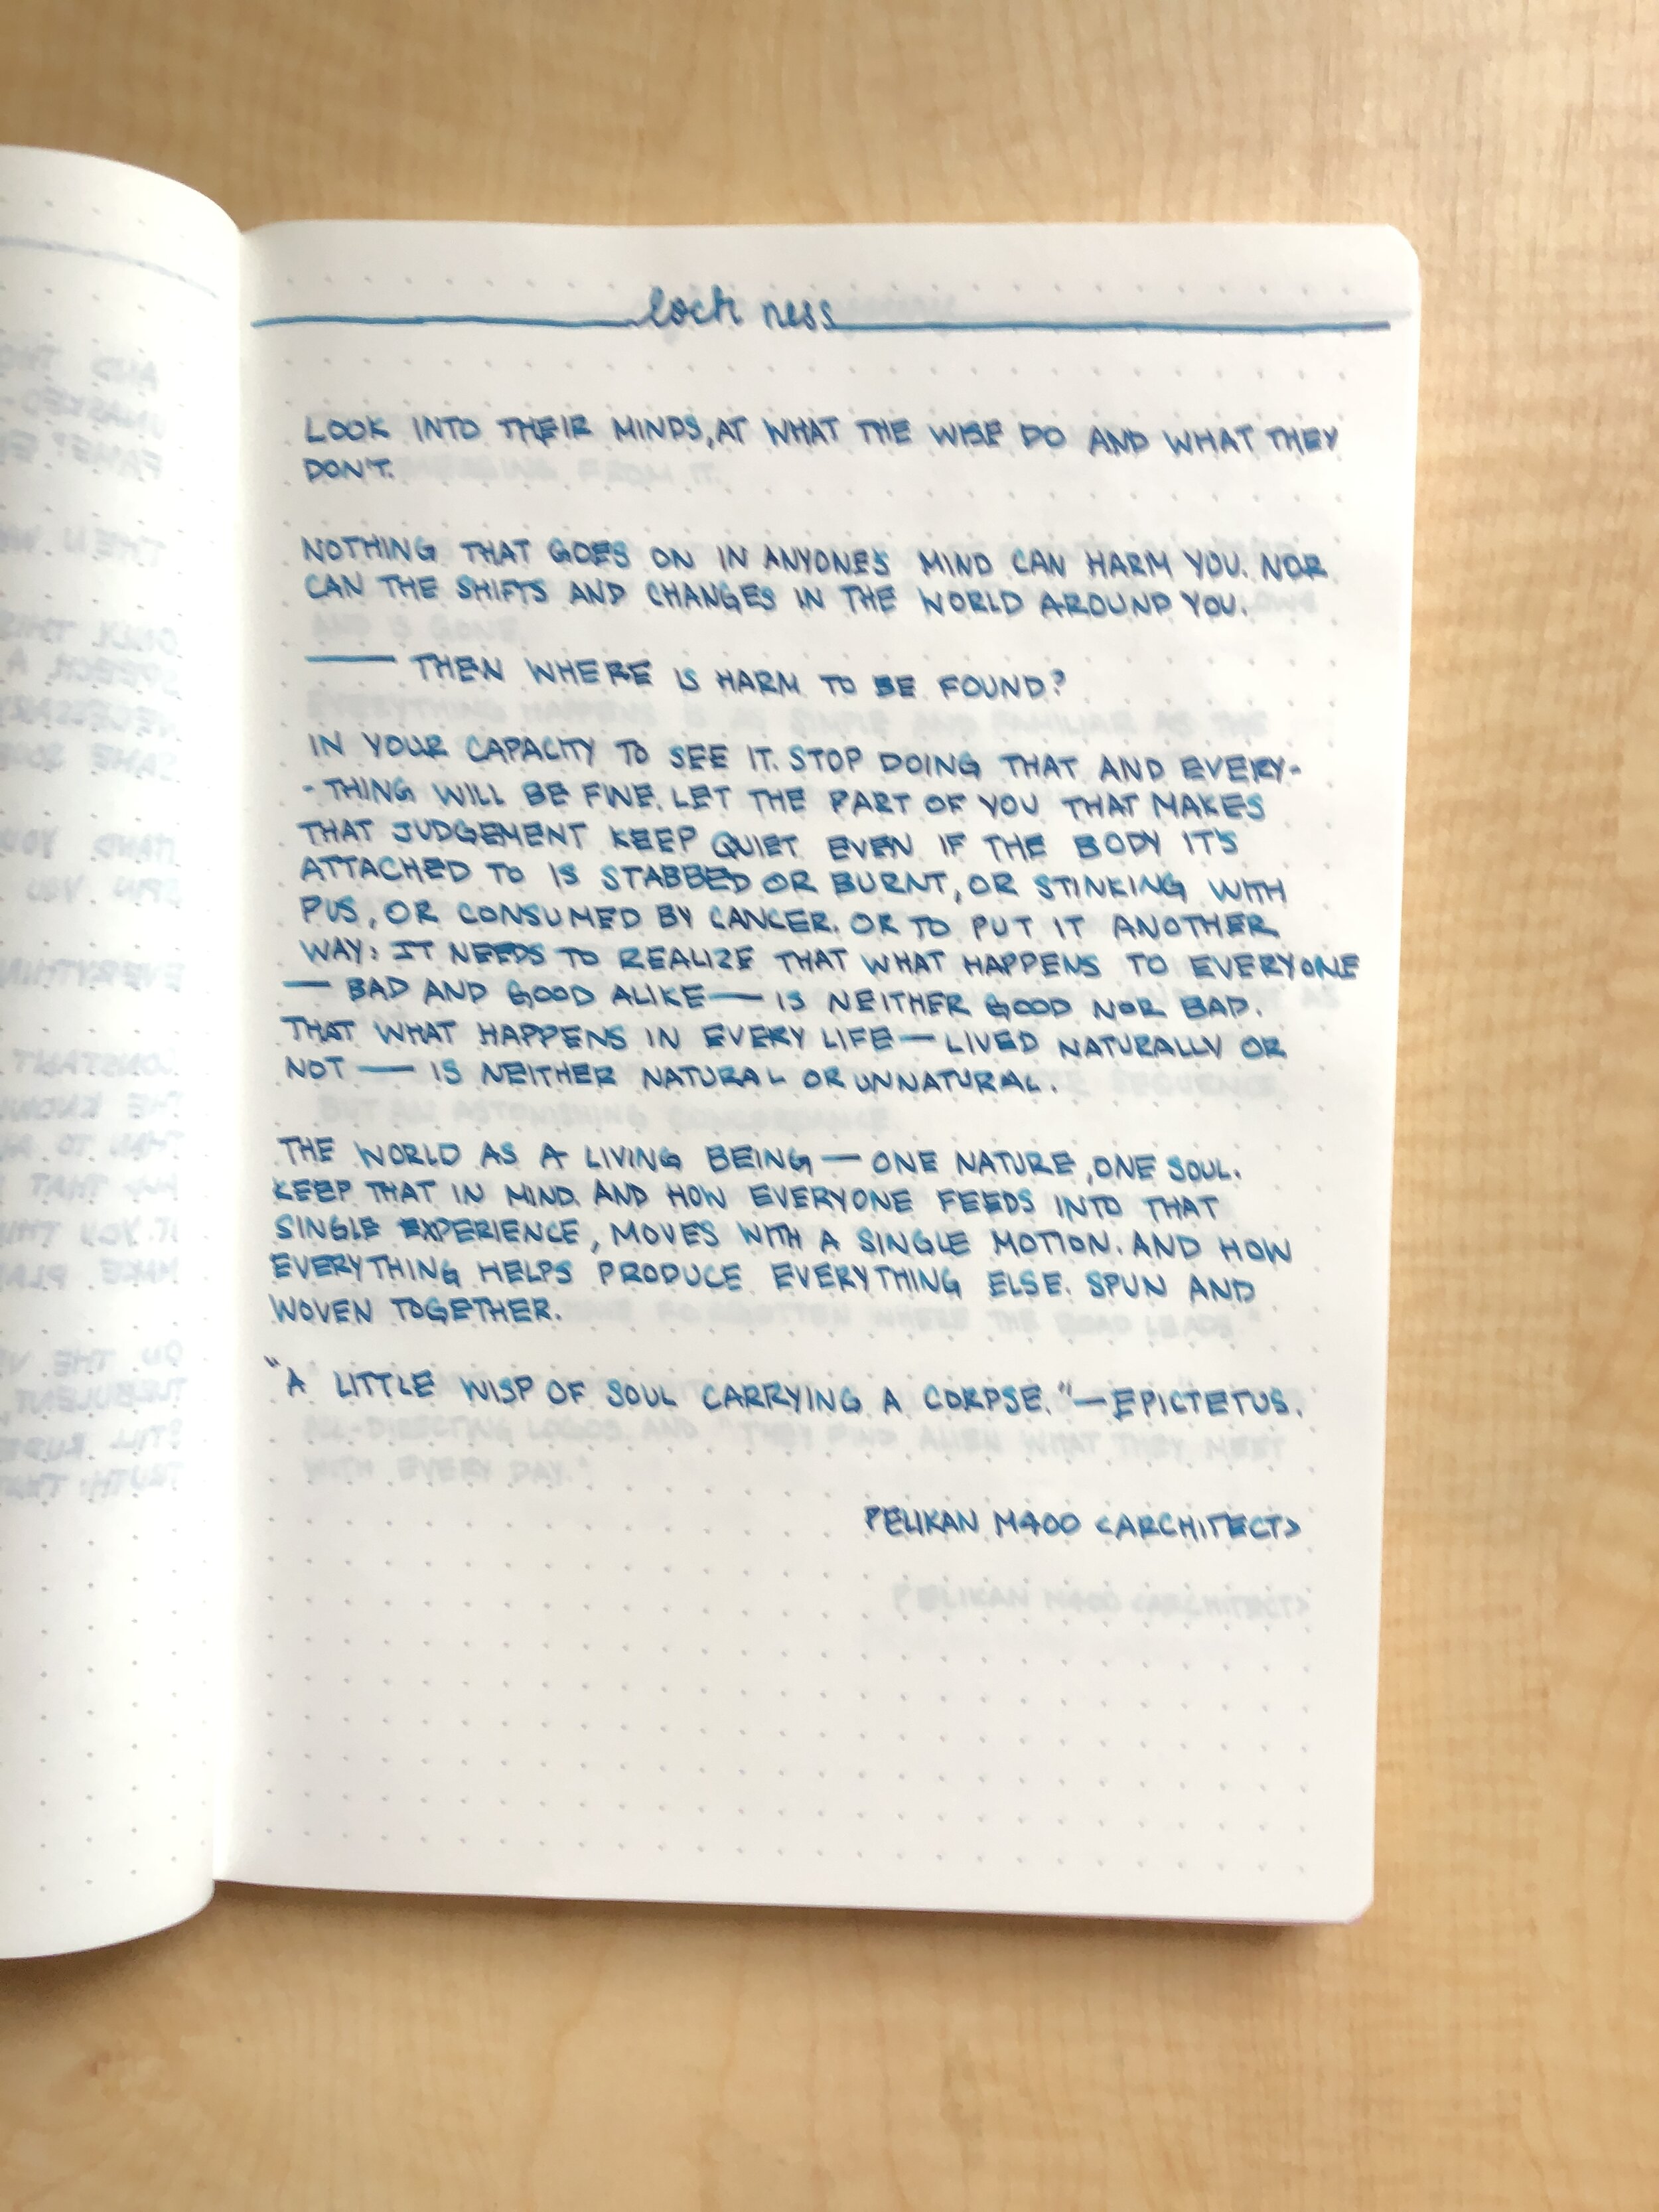 loch ness
LOOK INTO THEIR MINDS, AT WHAT THE WISE DO AND WHAT THEY
DON'T.
NOTHING THAT GOES ON IN ANYONE'S MIND CAN HARM YOU. NOR
CAN THE SHIFTS AND CHANGES IN THE WORLD AROUND YOU.
— THEN WHERE IS HARM TO BE FOUND?
IN YOUR CAPACITY TO SEE IT. STOP DOING THAT AND EVERY-
-THING WILL BE FINE. LET THE PART OF YOU THAT MAKES
THAT JUDGEMENT KEEP QUIET EVEN IF THE BODY IT'S
ATTACHED TO IS STABBED OR BURNT, OR STINKING WITH
PUS, OR CONSUMED BY CANCER. OR TO PUT IT ANOTHER
WAY: IT NEEDS TO REALIZE THAT WHAT HAPPENS TO EVERYONE
— BAD AND GOOD ALIKE — IS NEITHER GOOD NOR BAD.
THAT WHAT HAPPENS IN EVERY LIFE — LIVED NATURALLY OR
NOT — IS NEITHER NATURAL OR UNNATURAL.
THE WORLD AS A LIVING BEING — ONE NATURE, ONE SOUL.
KEEP THAT IN MIND. AND HOW EVERYONE FEEDS INTO THAT
SINGLE EXPERIENCE, MOVES WITH A SINGLE MOTION. AND HOW
EVERYTHING HELPS PRODUCE EVERYTHING ELSE. SPUN AND
WOVEN TOGETHER.
"A LITTLE WISP OF SOUL CARRYING A CORPSE." — EPICTETUS.
PELIKAN M400 <ARCHITECT>